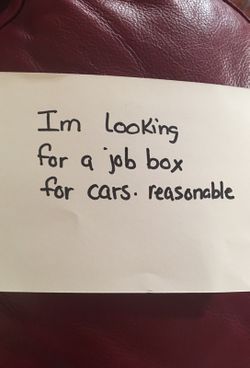 Im Looking
for a job box
for cars. reasonable